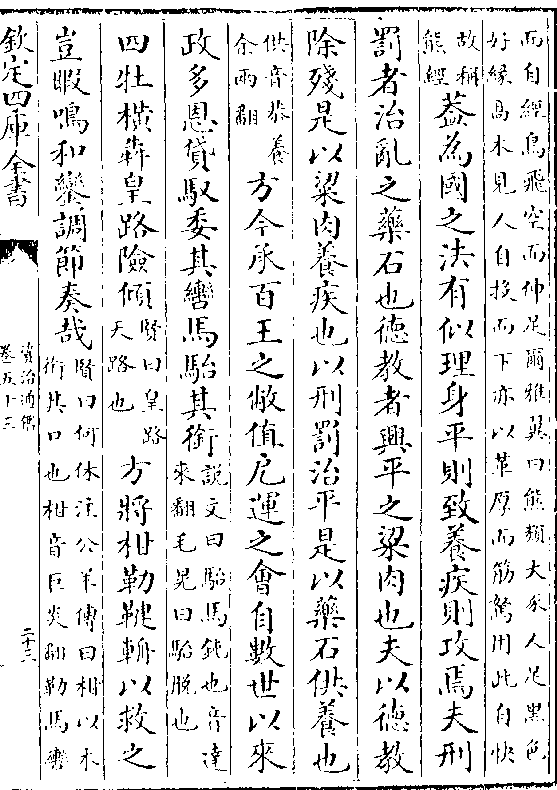 而自經鳥飛空而伸足爾雅翼曰熊類大豕人足黑色
好緣高木見人自投而下亦以革厚而筋駑用此自快
故稱
熊經
葢為國之法有似理身平則致養疾則攻焉夫刑
罰者治亂之藥石也德教者興平之梁肉也夫以德教
除殘是以梁肉養疾也以刑罰治平是以藥石供養也
供音恭養
余兩翻
方今承百王之敝值戹運之會自數世以來
政多恩貸馭委其轡馬駘其銜
說文曰駘馬銜也音達
來翻毛晃曰駘脫也
四牡橫犇皇路險傾
賢曰皇路
天路也
方將柑勒鞬輈以救之
豈暇鳴和鑾調節奏哉
賢曰何休注公羊傳曰柑以木
銜其口也柑音巨炎翻勒馬轡
欽定四庫全書
資治通鑑
卷五十三
二十三